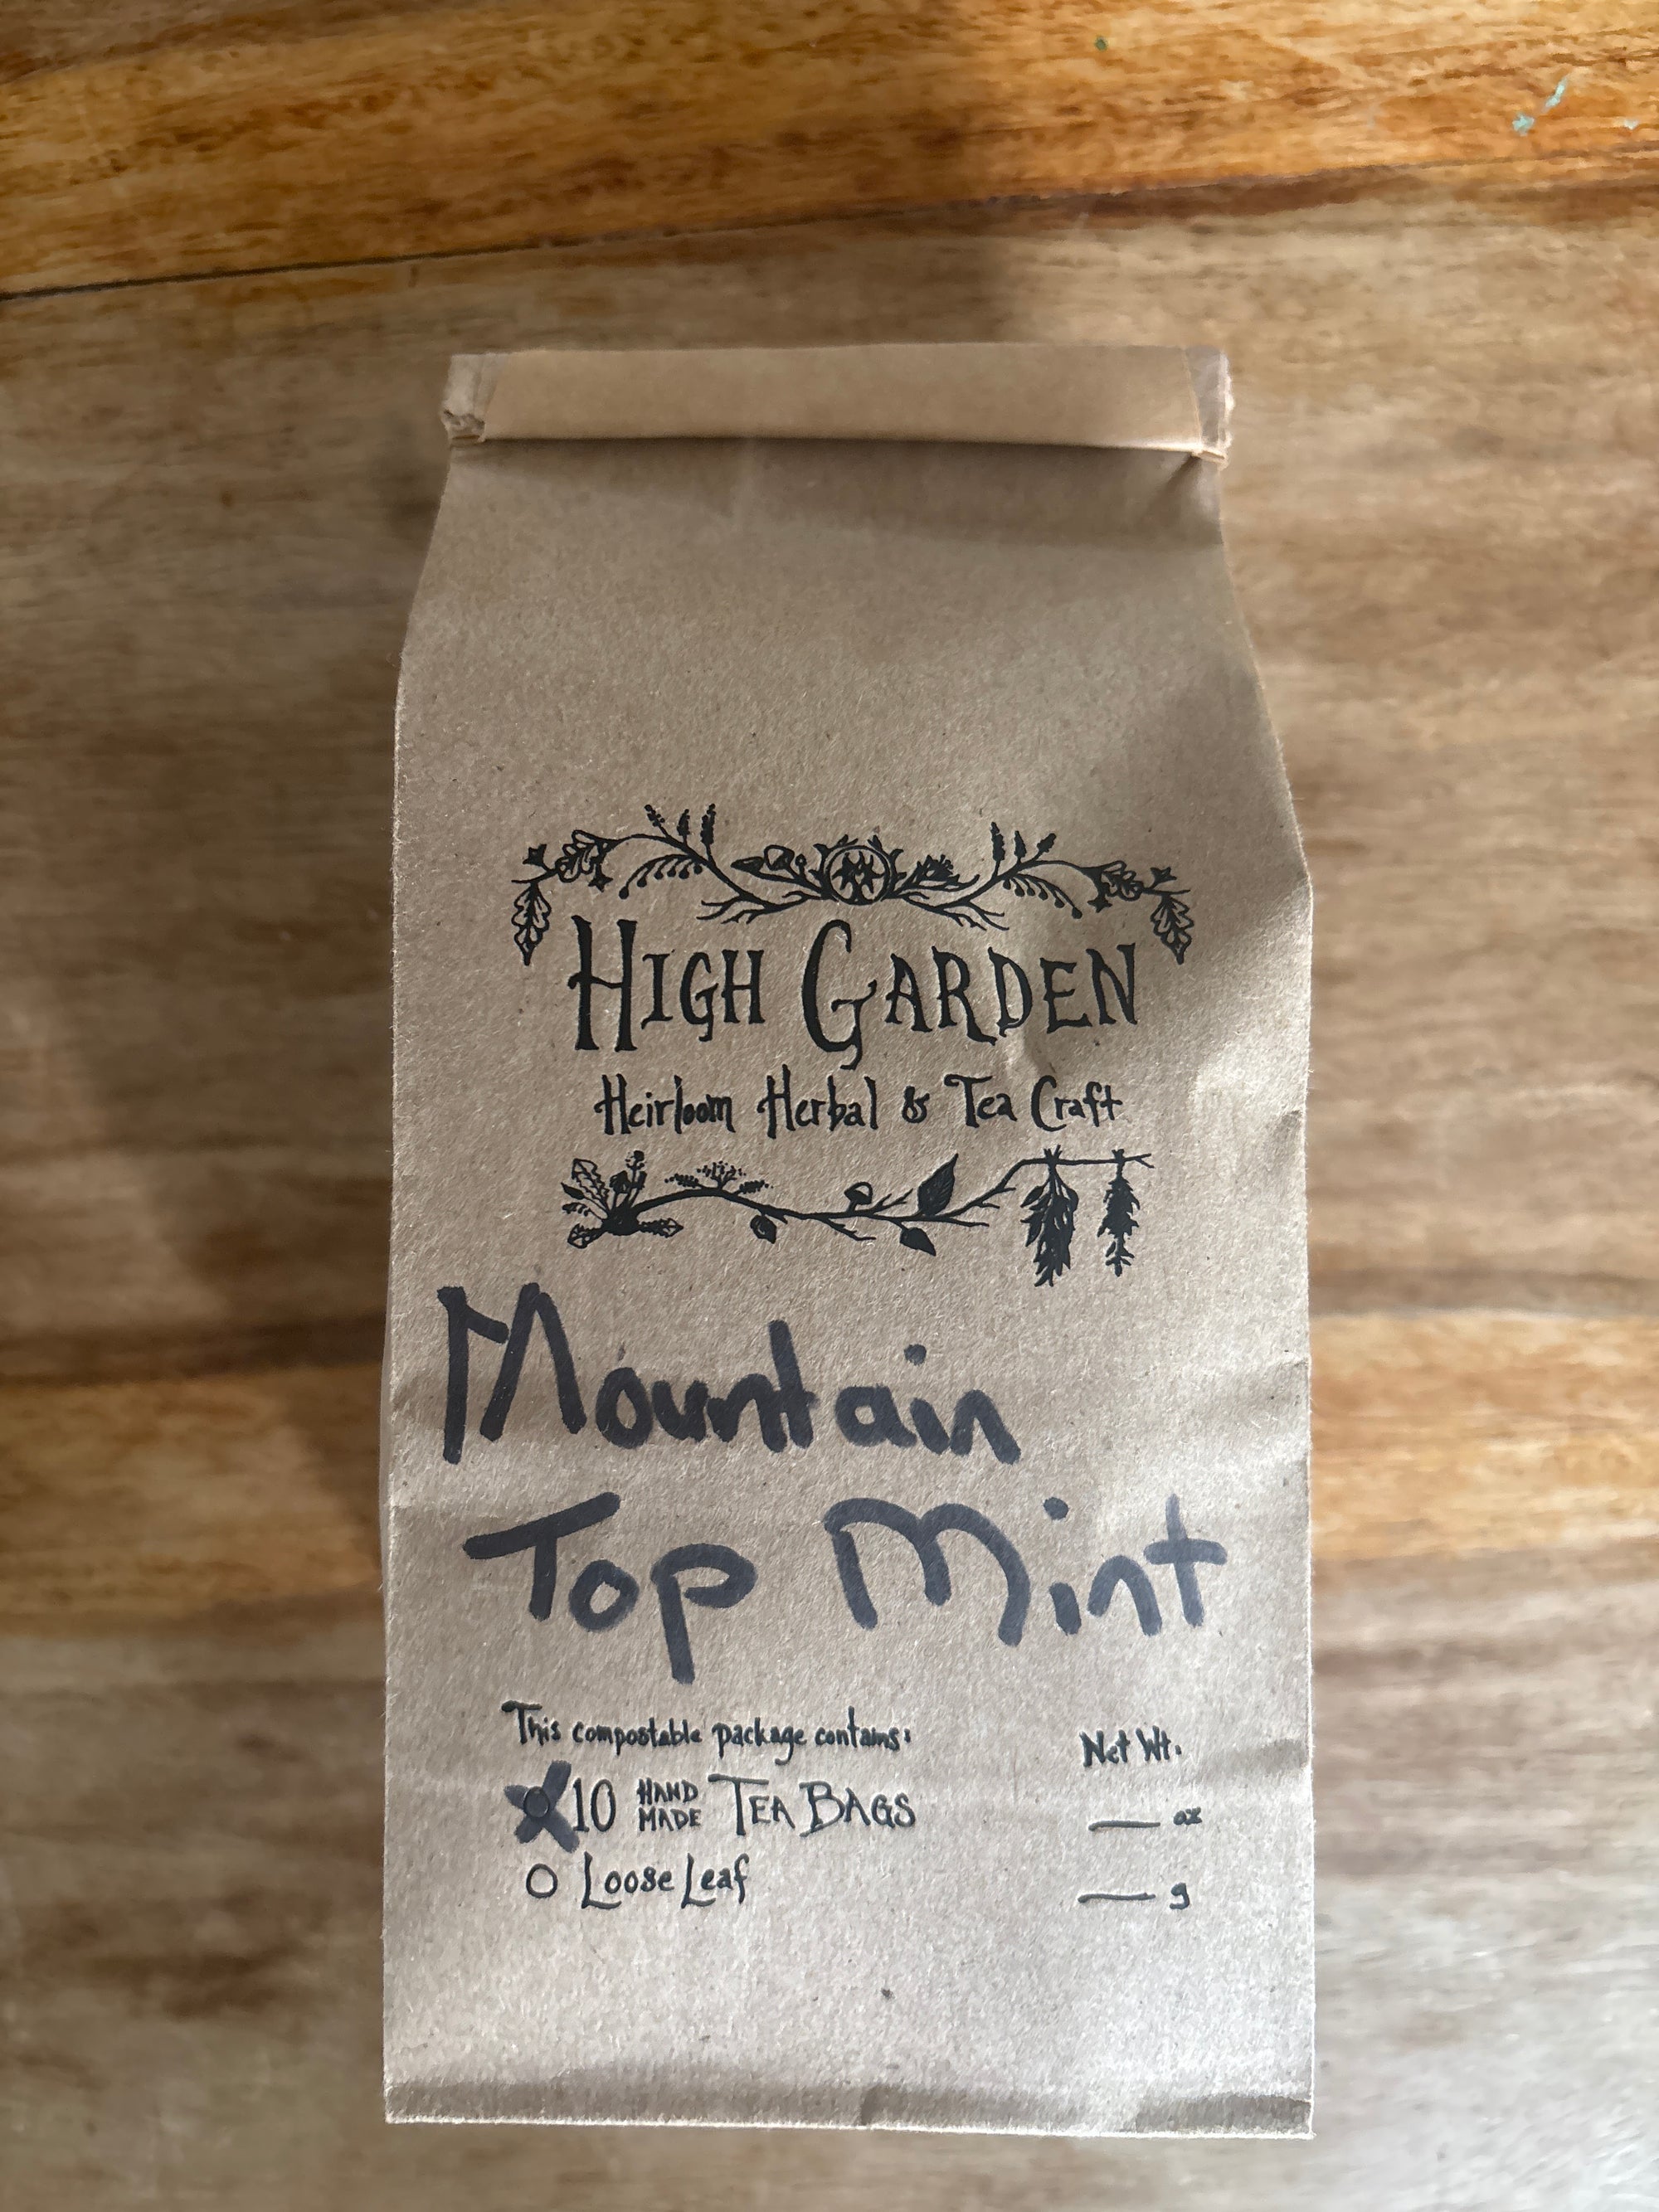 HIGH GARDEN
Heirloom Herbal & Tea Craft
Mountain
Top Mint
This compostable package contains:
10 HAND MADE TEA BAGS
Loose Leaf
Net Wt.
oz
g